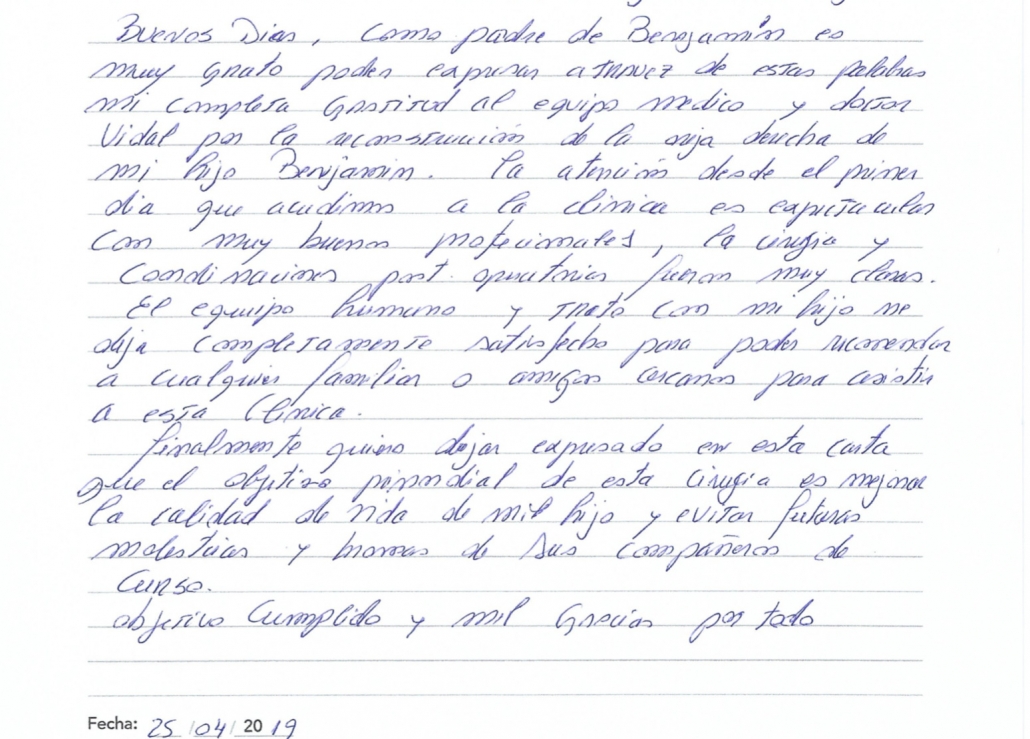 Buenos Dias, como padre de Benjamín es
muy grato poder expresar a travez de estas palabras
mi completa Gratitud al equipo medico y doctor
Vidal por la reconstrucción de la oreja derecha de
mi hijo Benjamin. La atención desde el primer
dia que acudimos a la clinica es espectacular
con muy buenos profecionales, la cirugia y
coordinaciones post. operatorias fueron muy claras.
El equipo humano y trato con mi hijo me
deja completamente satisfecho para poder recomendar
a cualquier familiar o amigos cercanos para asistir
a esta Clinica.
finalmente quiero dejar expresado en esta carta
que el objetivo primordial de esta cirugia es mejorar
la calidad de vida de mil hijo y evitar futuras
molestias y bromas de sus compañeros de
Curso.
objetivo Cumplido y mil Gracias por todo
Fecha: 25/04/2019